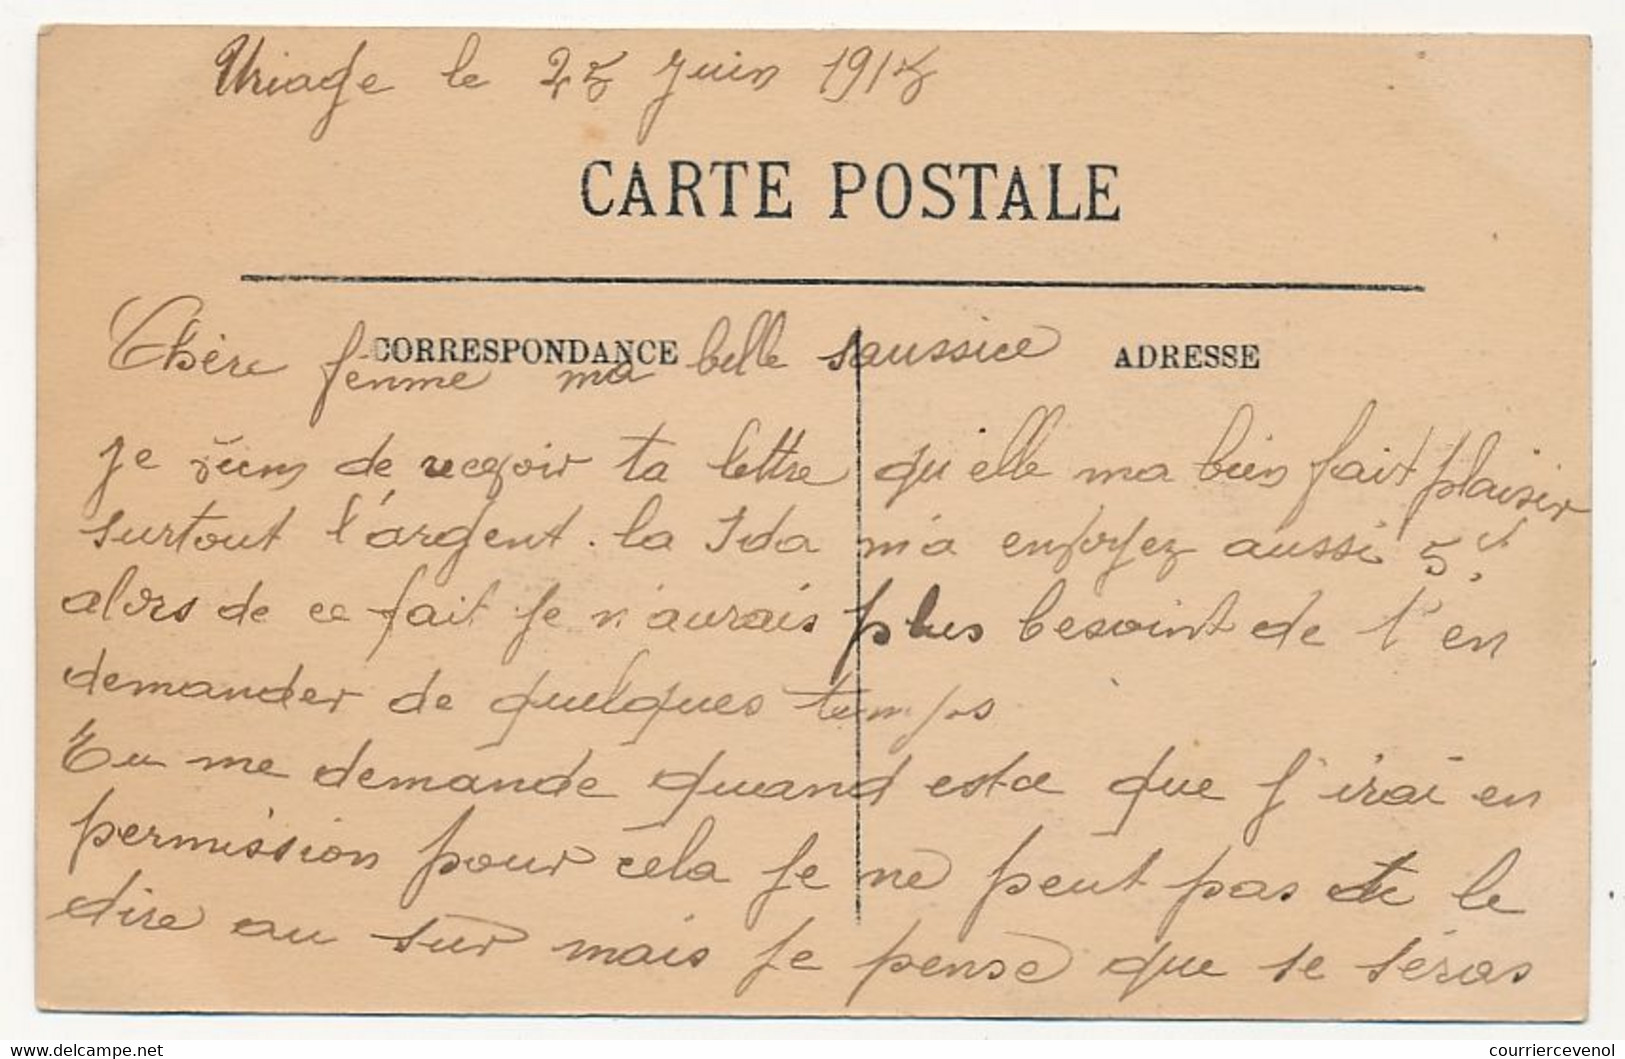 Uriage le 25 juin 1915
CARTE POSTALE
CORRESPONDANCE
ADRESSE
Chère fenme ma belle saussice
je viens de recevoir ta lettre qu'elle ma bien fait plaisir
surtout l'argent. la Ida m'a envoyez aussi 5
alors de ce fait je n'aurais plus besoint de t'en
demander de quelques temps
Tu me demande quand est ce que j'irai en
permission pour cela je ne peut pas te le
dire au sur mais je pense que se séras
www.delcampe.net
courriercevenol